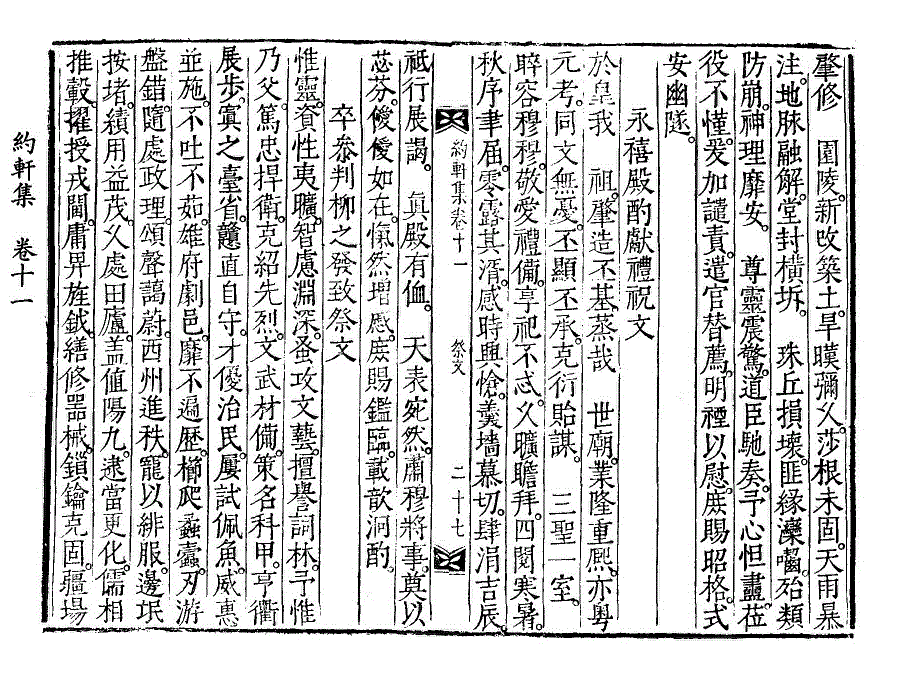 肇修　園陵。新改築土。旱暵彌久。莎根未固。天雨暴
注。地脉融解。堂封橫坼。　珠丘損壞。匪緣灤囓。殆類
防崩。神理靡安。　尊靈震驚。道臣馳奏。予心怛盡。莅
役不慬。爰加譴責。遣官替薦。明禋以慰。庶賜昭格。式
安幽隧。
永禧殿酌獻禮祝文
於皇我　祖。肇造丕基。蒸哉　世廟。業隆重熙。亦粤
元考。同文無憂。丕顯丕承。克衍貽謀。　三聖一室。
睟容穆穆。敬愛禮備。享祀不忒。久曠瞻拜。四閱寒暑。
秋序聿届。零露其湑。感時興愴。羹墻慕切。肆涓吉辰。
約軒集卷十一　祭文　二十七
祗行展謁。　眞殿有侐。　天表宛然。肅穆將事。奠以
苾芬。僾僾如在。愾然增慼。庶賜鑑臨。載歆泂酌。
卒參判柳之發致祭文
惟靈。資性夷曠。智慮淵深。蚤攻文藝。擅譽詞林。予惟
乃父。篤忠捍衛。克紹先烈。文武材備。策名科甲。亨衢
展步。寘之臺省。戇直自守。才優治民。屢試佩魚。威惠
並施。不吐不茹。雄府劇邑。靡不遍歷。櫛爬蠡蠹。刃游
盤錯。隨處政理。頌聲藹蔚。西州進秩。寵以緋服。邊垊
按堵。績用益茂。久處田廬。盖値陽九。逮當更化。儒相
推轂。擢授戎閫。庸畀旌鉞。繕修器械。鎖鑰克固。疆場
約軒集　卷十一